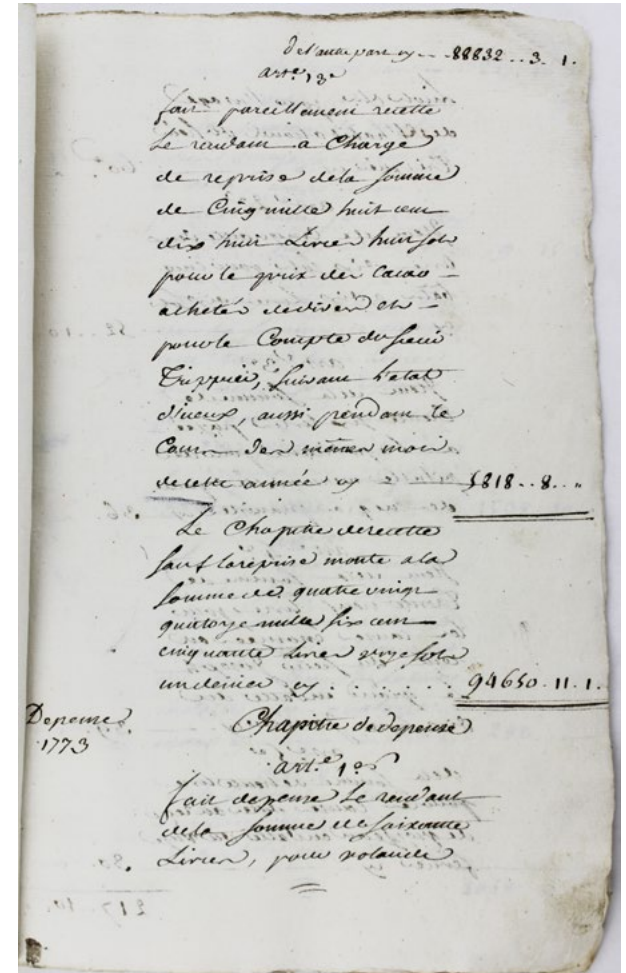 de l'autre part cy --- 88832 .. 3 . 1 .
art.e 13e
fait pareillement recette
Le rendant a Charge
de reprise dela somme
de Cinq mille huit cent
dix huit Livres huit sols
pour le prix des Cacao
achetés de divers et
pour le Compte du sieur
Trippier, suivant L'etat
d'iceux, aussi pendant le
Cours des mêmes mois
de cette année cy 5818 .. 8 .. "
Le Chapitre de recette
sauf la reprise monte ala
somme de quatre vingt
quatorze mille six cent
cinquante Livres onze sols
un denier cy . . . . . . 94650 . 11 . 1 .
Depense
1773
Chapitre de depense
art.e 1er
fait depense Le rendant
dela somme de soixante
Livres, pour